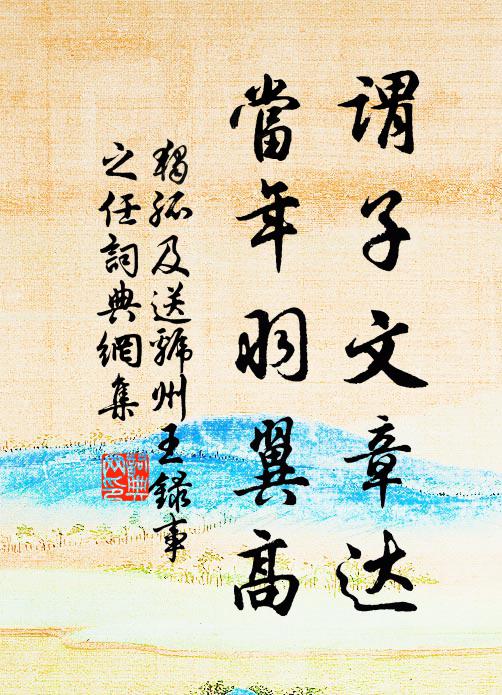 謂子文章达
當年羽翼高
獨孤及送虢州王錄事
之任詞典網集